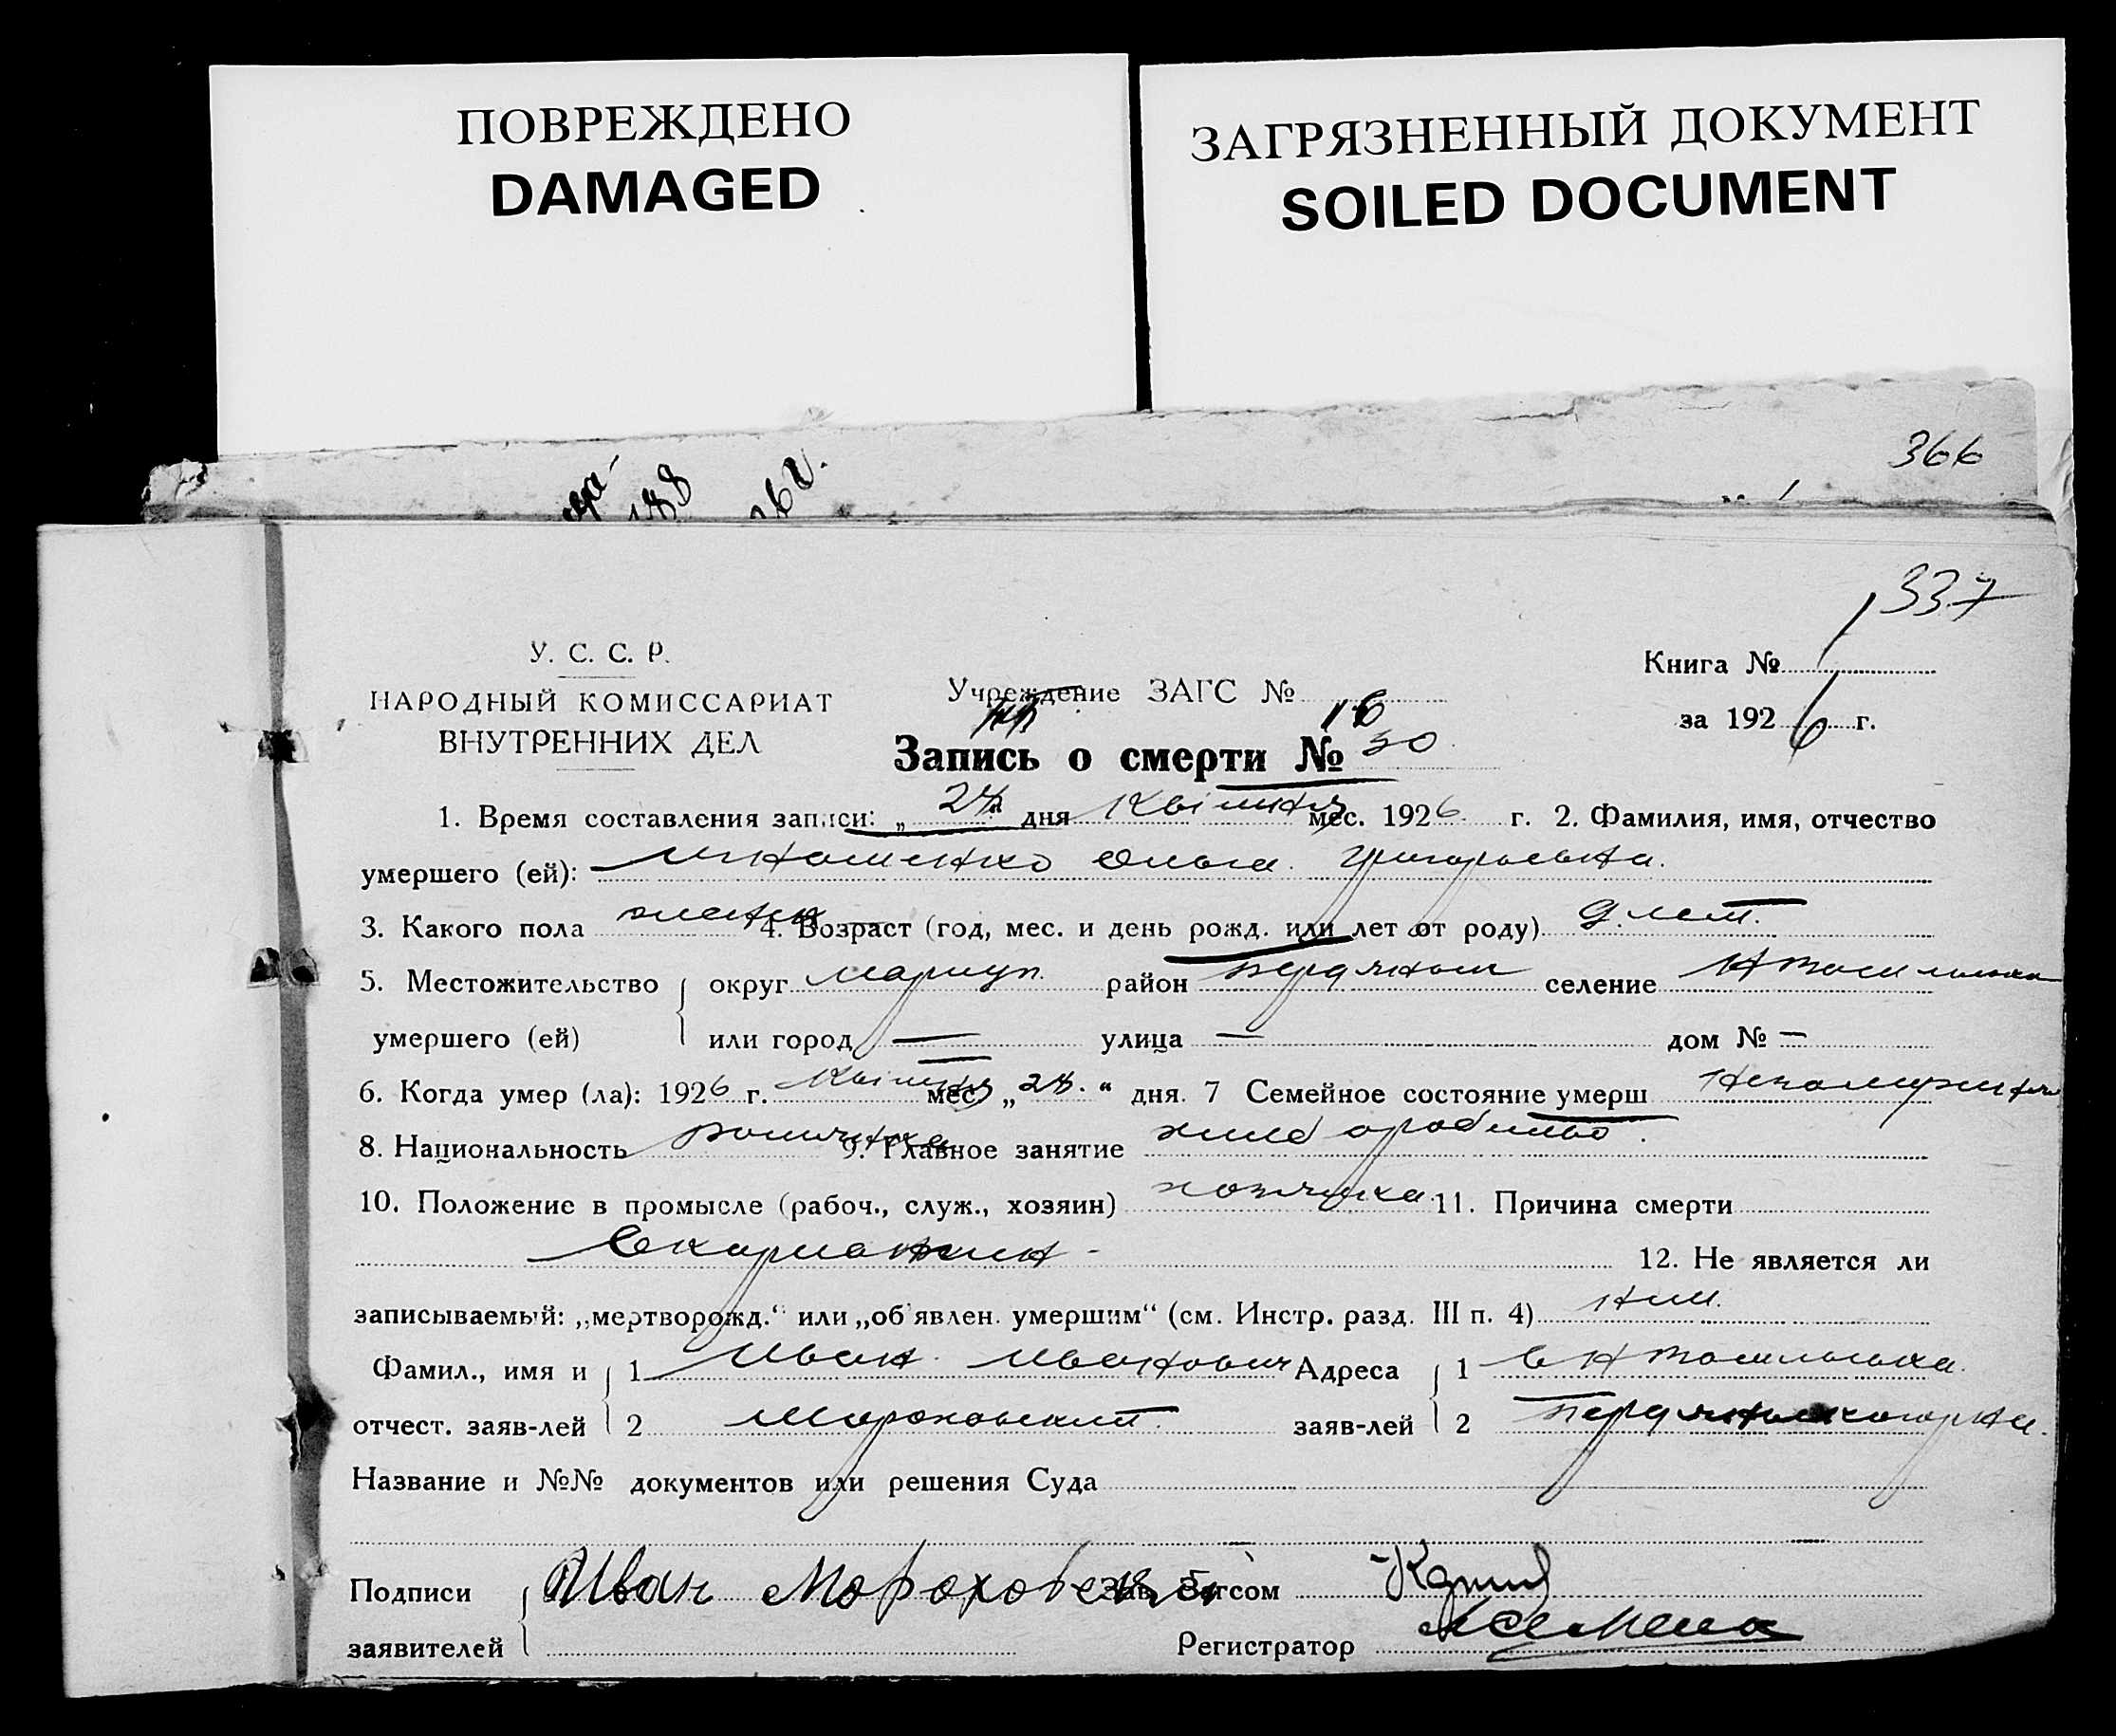 ПОВРЕЖДЕНО
DAMAGED
ЗАГРЯЗНЕННЫЙ ДОКУМЕНТ
SOILED DOCUMENT
366
337
У. С. С. Р.
НАРОДНЫЙ КОМИССАРИАТ
ВНУТРЕННИХ ДЕЛ
Учреждение ЗАГС №
Книга № 1
за 1926 г.
Запись о смерти № 30
1. Время составления записи: „24“ дня Квітня мес. 1926 г. 2. Фамилия, имя, отчество
умершего (ей): Ольга Григорьевна.
3. Какого пола 4. Возраст (год, мес. и день рожд. или лет от роду) 9 лет.
5. Местожительство округ Мариуп. район селение
умершего (ей) или город — улица — дом № —
6. Когда умер (ла): 1926 г. Квітня мес. „24.“ дня. 7 Семейное состояние умерш
8. Национальность 9. Главное занятие хлеборобство.
10. Положение в промысле (рабоч., служ., хозяин) 11. Причина смерти
Скарлатина - 12. Не является ли
записываемый: „мертворожд.“ или „об'явлен. умершим“ (см. Инстр. разд. III п. 4)
Фамил., имя и 1 Иван Иванович Адреса 1
отчест. заяв-лей 2 Мороховский. заяв-лей 2
Название и №№ документов или решения Суда
Подписи Иван Мороховський Зав. Загсом
заявителей Регистратор